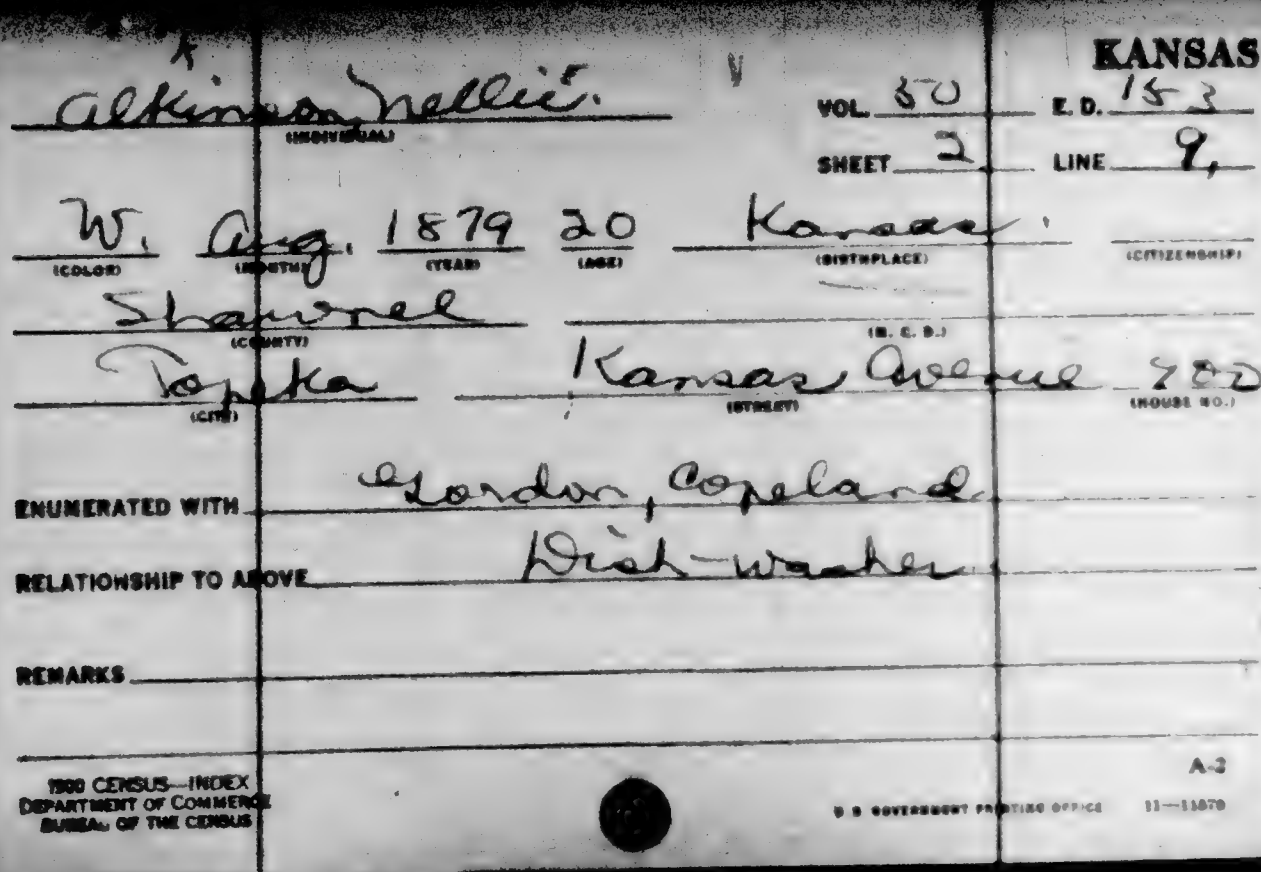 KANSAS
Alkinson, Nellie. VOL. 50 E. D. 153
(INDIVIDUAL)
SHEET 2 LINE 9,
W. Aug. 1879 20 Kansas.
(COLOR) (MONTH) (YEAR) (AGE) (BIRTHPLACE) (CITIZENSHIP)
Shawnee
(COUNTY) (M. C. D.)
Topeka Kansas Avenue
(CITY) (STREET) (HOUSE NO.)
ENUMERATED WITH Gordon, Copeland
RELATIONSHIP TO ABOVE Dish-washer
REMARKS
1900 CENSUS—INDEX
DEPARTMENT OF COMMERCE
BUREAU OF THE CENSUS
A-2
U S GOVERNMENT PRINTING OFFICE 11—11870